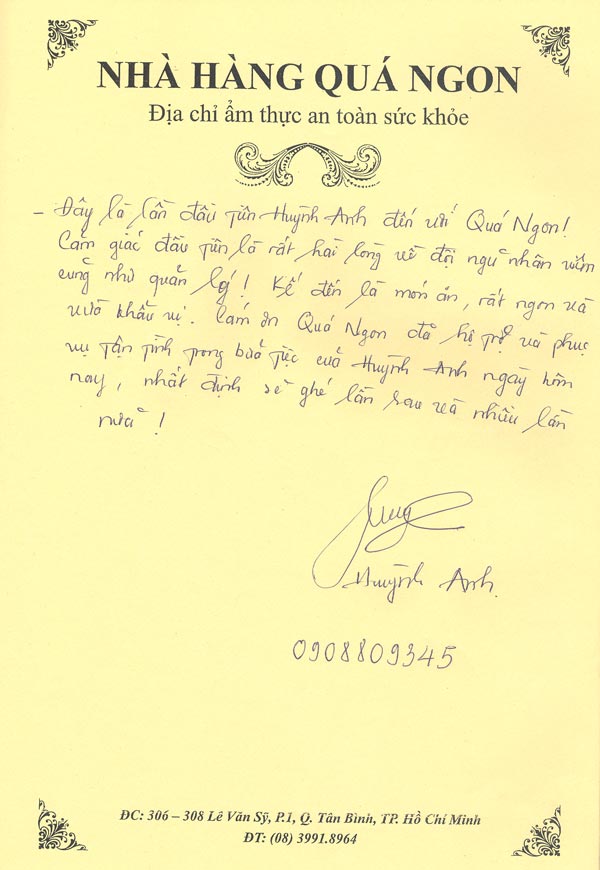 NHÀ HÀNG QUÁ NGON
Địa chỉ ẩm thực an toàn sức khỏe
- Đây là lần đầu tiên Huỳnh Anh đến với Quá Ngon!
Cảm giác đầu tiên là rất hài lòng về đội ngũ nhân viên
cũng như quản lý! Kế đến là món ăn, rất ngon và
vừa khẩu vị. Cám ơn Quá Ngon đã hỗ trợ và phục
vụ tận tình trong buổi tiệc của Huỳnh Anh ngày hôm
nay, nhất định sẽ ghé lần sau và nhiều lần
nữa!
Huỳnh Anh
0908809345
ĐC: 306 – 308 Lê Văn Sỹ, P.1, Q. Tân Bình, TP. Hồ Chí Minh
ĐT: (08) 3991.8964